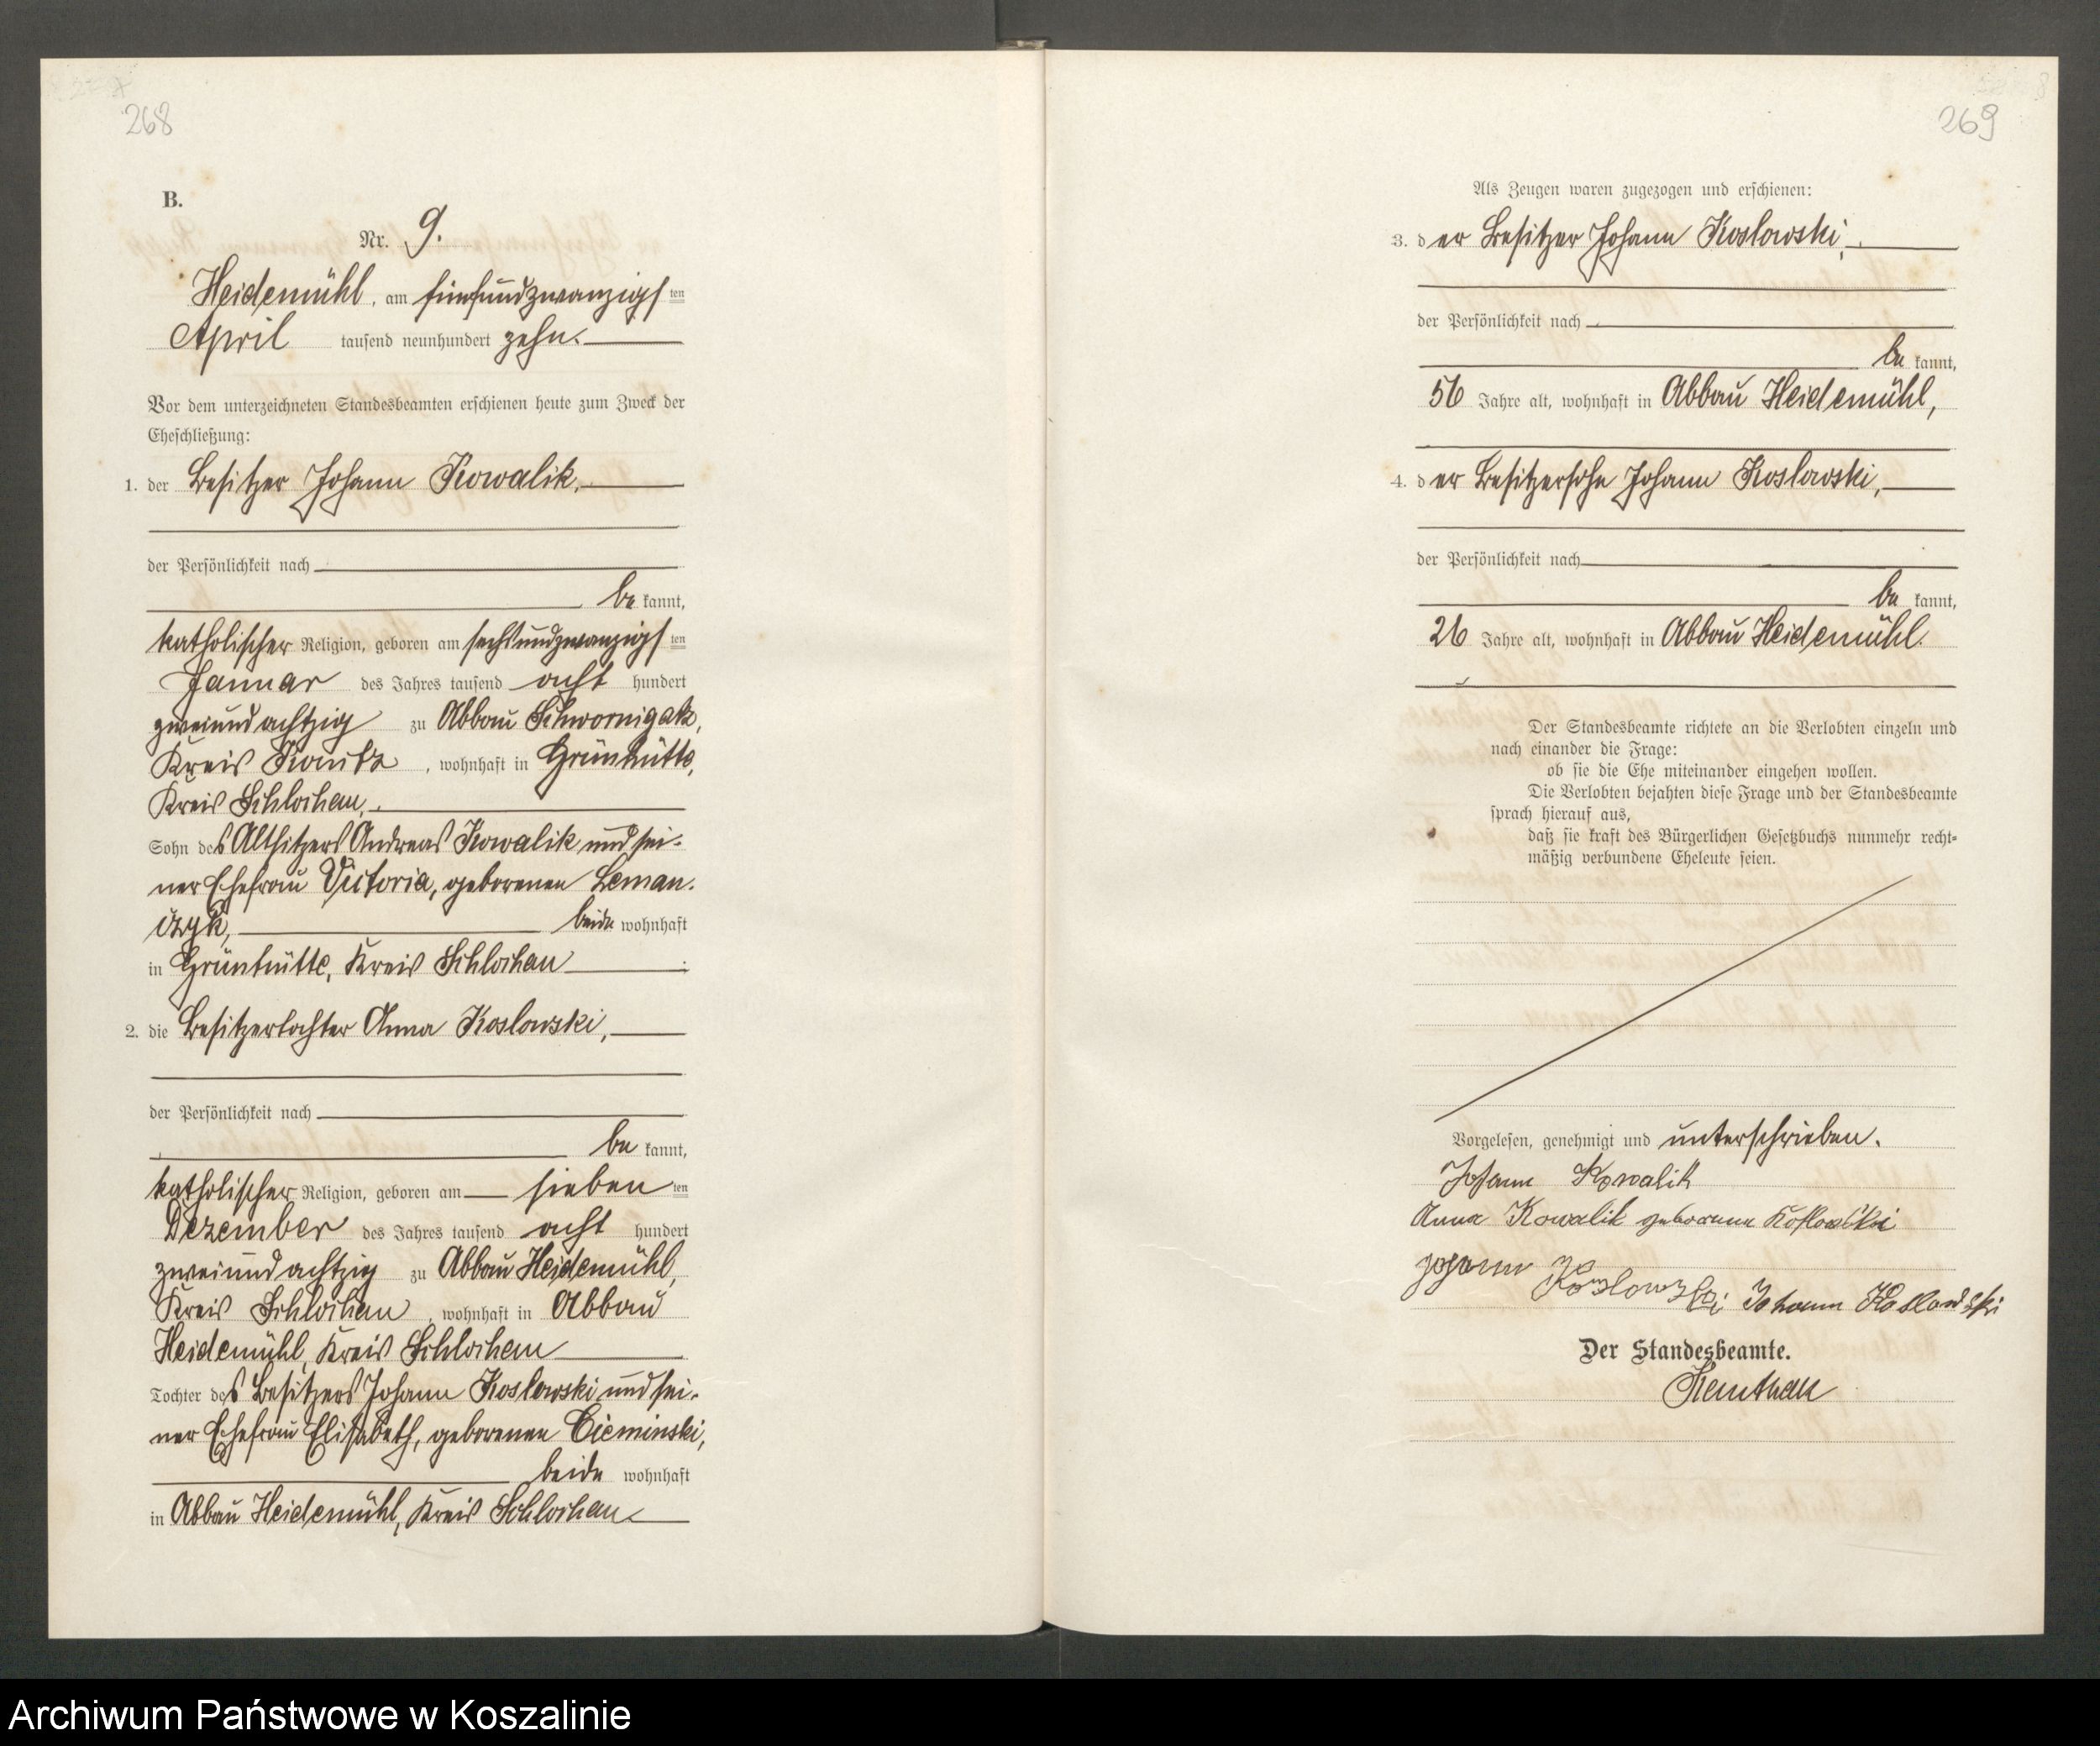 268
B.
Nr. 9.
Heidemühl, am fünfundzwanzigsten
April tausend neunhundert zehn.
Vor dem unterzeichneten Standesbeamten erschienen heute zum Zweck der
Eheschließung:
1. der Besitzer Johann Kowalik,
der Persönlichkeit nach
bekannt,
katholischer Religion, geboren am sechsundzwanzigsten
Januar des Jahres tausend acht hundert
zweiundachtzig zu Abbau Schwornigatz,
Kreis Konitz, wohnhaft in Grünhütte,
Kreis Schlochau,
Sohn des Altsitzers Andreas Kowalik und sei-
ner Ehefrau Victoria, geborenen Leman-
czyk, beide wohnhaft
in Grünhütte, Kreis Schlochau
2. die Besitzertochter Anna Koslowski,
der Persönlichkeit nach
bekannt,
katholischer Religion, geboren am siebenten
Dezember des Jahres tausend acht hundert
zweiundachtzig zu Abbau Heidemühl,
Kreis Schlochau, wohnhaft in Abbau
Heidemühl, Kreis Schlochau
Tochter des Besitzers Johann Koslowski und sei-
ner Ehefrau Elisabeth, geborenen Cieminski,
beide wohnhaft
in Abbau Heidemühl, Kreis Schlochau
269
Als Zeugen waren zugezogen und erschienen:
3. der Besitzer Johann Koslowski,
der Persönlichkeit nach
bekannt,
56 Jahre alt, wohnhaft in Abbau Heidemühl,
4. der Besitzersohn Johann Koslowski,
der Persönlichkeit nach
bekannt,
26 Jahre alt, wohnhaft in Abbau Heidemühl.
Der Standesbeamte richtete an die Verlobten einzeln und
nach einander die Frage:
ob sie die Ehe miteinander eingehen wollen.
Die Verlobten bejahten diese Frage und der Standesbeamte
sprach hierauf aus,
daß sie kraft des Bürgerlichen Gesetzbuchs nunmehr recht-
mäßig verbundene Eheleute seien.
Vorgelesen, genehmigt und unterschrieben.
Johann Kowalik
Anna Kowalik geborene Koslowski
Johann Koslowski Johann Koslowski
Der Standesbeamte.
Archiwum Państwowe w Koszalinie